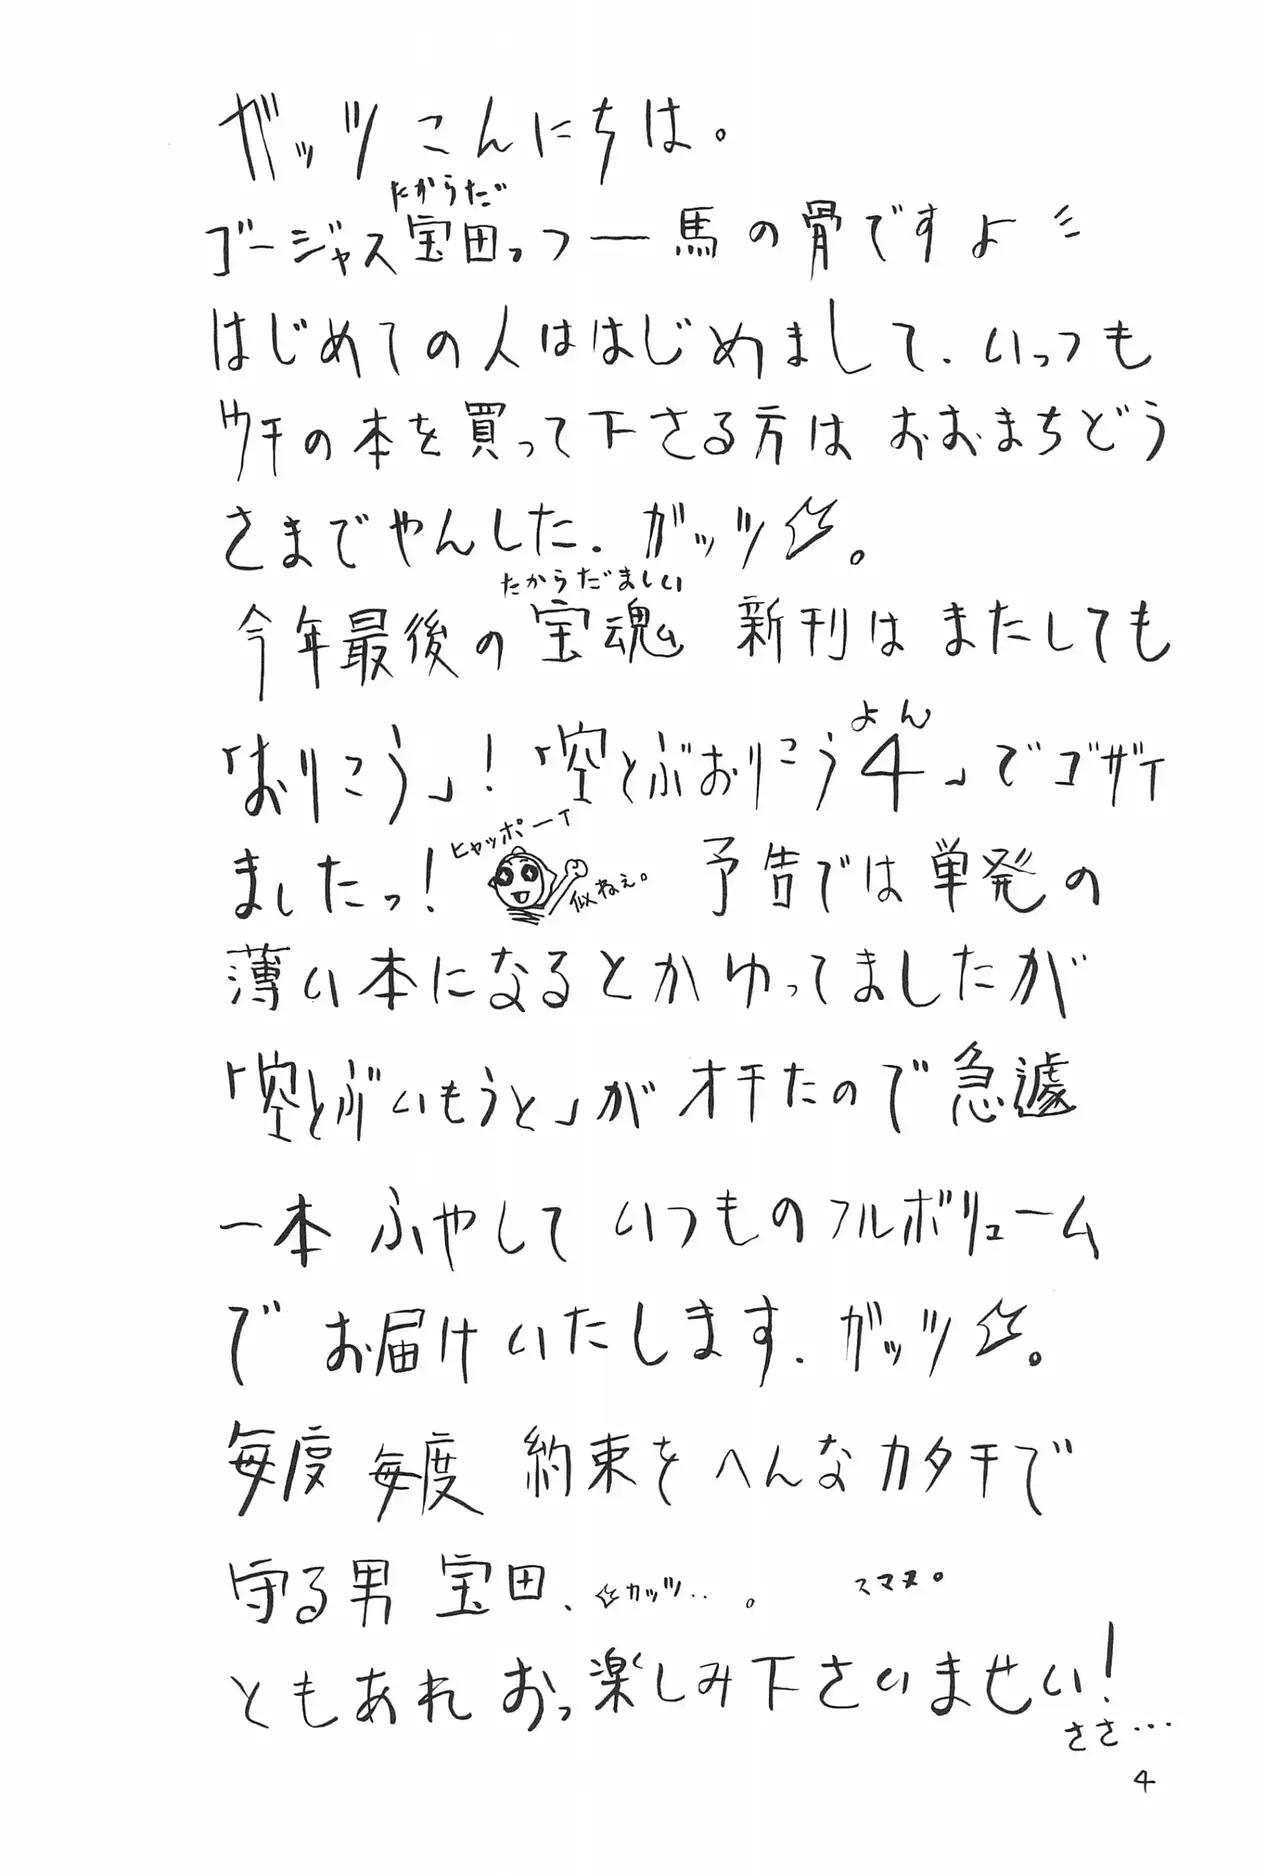 ガッツ こんにちは。
たからだ
ゴージャス宝田っつー馬の骨ですよ
はじめての人ははじめまして.いっつも
ウチの本を買って下さる方は おおまちどう
さまでやんした. ガッツ☆。
たからだましい
今年最後の宝魂 新刊は またしても
よん
「おりこう」!「空とぶおりこう4」でゴザイ
ヒャッポーイ
ましたっ! 似ねぇ。 予告では単発の
薄い本になるとかゆってましたが
「空とぶいもうと」がオチたので急遽
一本 ふやして いつものフルボリューム
で お届けいたします. ガッツ☆。
毎度 毎度 約束をへんなカタチで
守る男 宝田. ☆ガッツ..。 スマヌ。
ともあれ おっ楽しみ下さいませい!
ささ…
4